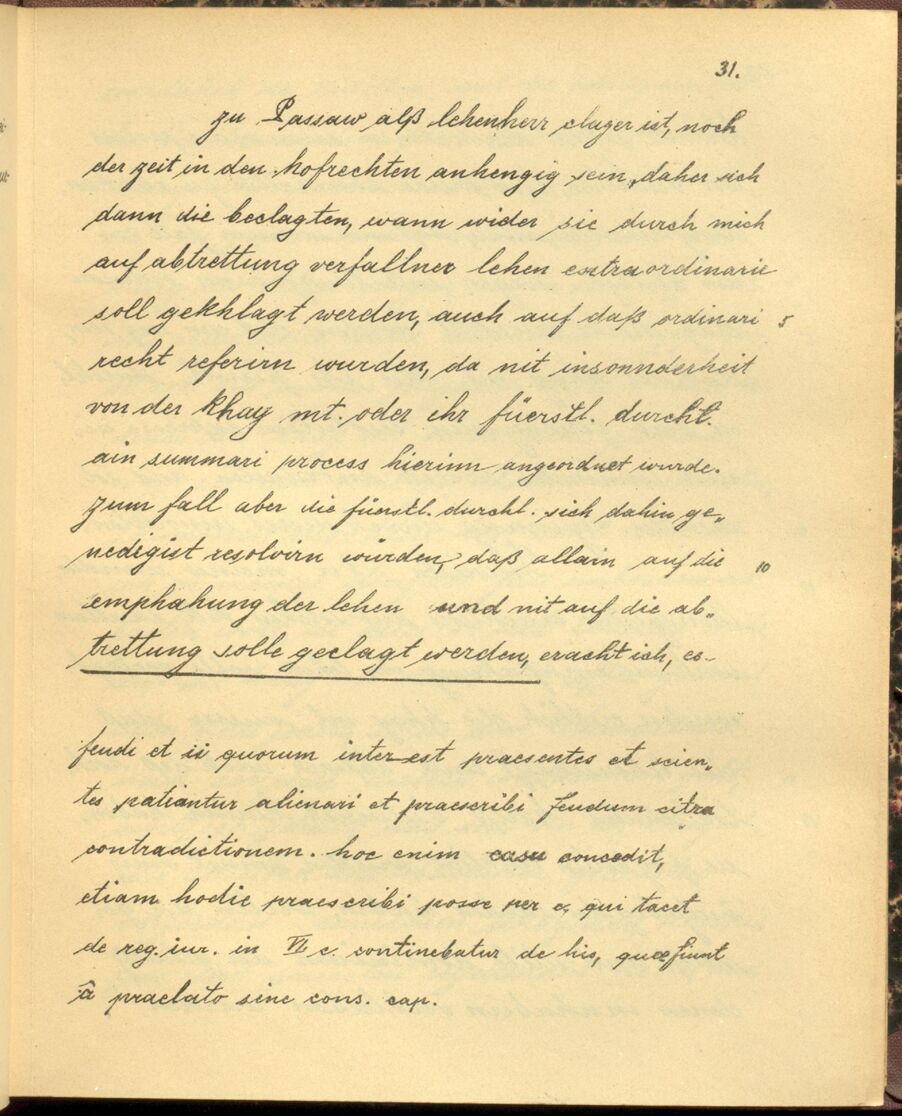 31.
zu Passaw alß lehenherr clager ist, noch
der zeit in den hofrechten anhengig sein, daher sich
dann die beclagten, wann wider sie durch mich
auf abtrettung verfallner lehen extraordinarie
soll gekhlagt werden, auch auf daß ordinari 5
recht referirn wurden, da nit insonnderheit
von der Khay mt. oder ihr füerstl. durchl.
ain summari process hierinn angeordnet wurde.
zum fall aber die füerstl. durchl. sich dahin ge„
nedigist resolvirn würden, daß allain auf die 10
emphahung der lehen und nit auf die ab„
trettung solle geclagt werden, eracht ich, es
feudi et ii quorum interest praesentes et scien„
tes patiantur alienari et praescribi feudum citra
contradictionem. hoc enim casu concedit,
etiam hodie praescribi posse per c, qui tacet
de reg. iur. in VI c. continebatur de his, quae fiunt
â praelato sine cons. cap.